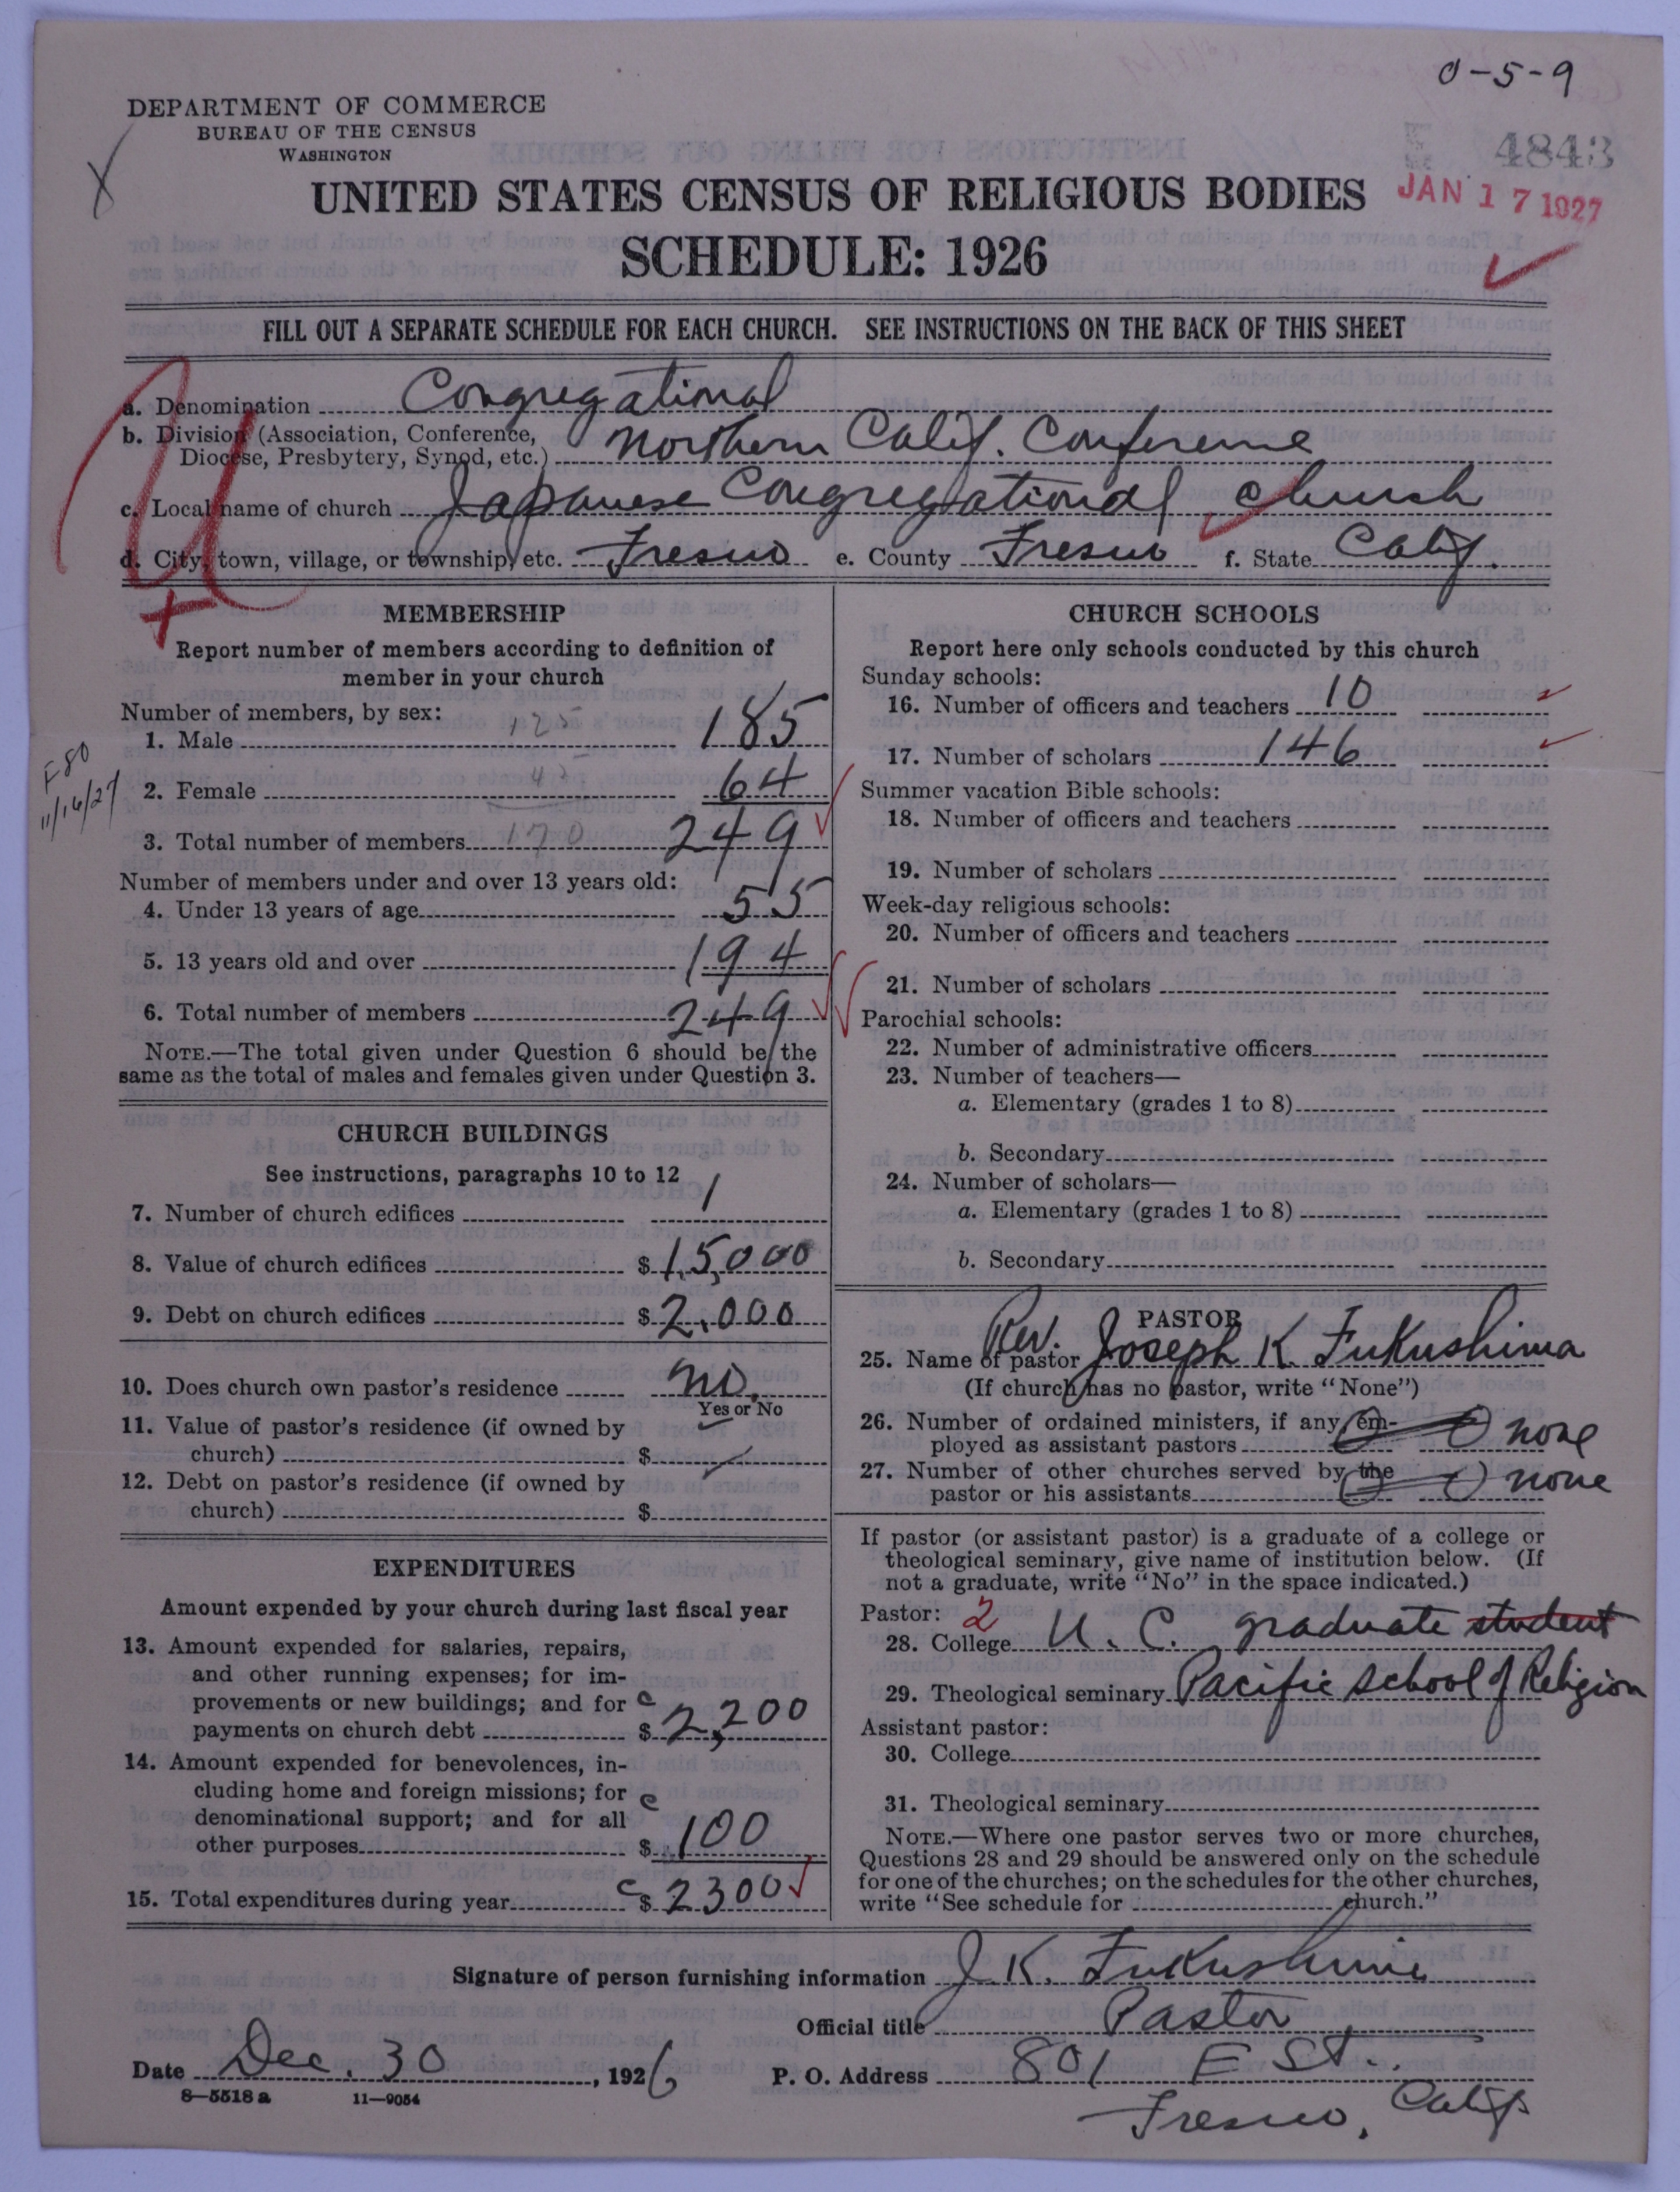 0-5-9
DEPARTMENT OF COMMERCE
BUREAU OF THE CENSUS
WASHINGTON
4843
JAN 17 1927
UNITED STATES CENSUS OF RELIGIOUS BODIES
SCHEDULE: 1926
FILL OUT A SEPARATE SCHEDULE FOR EACH CHURCH. SEE INSTRUCTIONS ON THE BACK OF THIS SHEET
a. Denomination Congregational
b. Division (Association, Conference,
Diocese, Presbytery, Synod, etc.) Northern Calif. Conference
c. Local name of church Japanese Congregational Church
d. City, town, village, or township, etc. Fresno e. County Fresno f. State Calif.
MEMBERSHIP
Report number of members according to definition of
member in your church
Number of members, by sex:
1. Male 125 185
F80
11/16/27
2. Female 45 64
3. Total number of members 170 249
Number of members under and over 13 years old:
4. Under 13 years of age 55
5. 13 years old and over 194
6. Total number of members 249
NOTE.—The total given under Question 6 should be the
same as the total of males and females given under Question 3.
CHURCH BUILDINGS
See instructions, paragraphs 10 to 12
7. Number of church edifices 1
8. Value of church edifices $ 15,000
9. Debt on church edifices $ 2,000
10. Does church own pastor's residence no.
Yes or No
11. Value of pastor's residence (if owned by
church) $
12. Debt on pastor's residence (if owned by
church) $
EXPENDITURES
Amount expended by your church during last fiscal year
13. Amount expended for salaries, repairs,
and other running expenses; for im-
provements or new buildings; and for c
payments on church debt $ 2,200
14. Amount expended for benevolences, in-
cluding home and foreign missions; for c
denominational support; and for all
other purposes $ 100
15. Total expenditures during year c $ 2300
CHURCH SCHOOLS
Report here only schools conducted by this church
Sunday schools:
16. Number of officers and teachers 10
17. Number of scholars 146
Summer vacation Bible schools:
18. Number of officers and teachers
19. Number of scholars
Week-day religious schools:
20. Number of officers and teachers
21. Number of scholars
Parochial schools:
22. Number of administrative officers
23. Number of teachers—
a. Elementary (grades 1 to 8)
b. Secondary
24. Number of scholars—
a. Elementary (grades 1 to 8)
b. Secondary
PASTOR
25. Name of pastor Rev. Joseph K. Fukushima
(If church has no pastor, write "None")
26. Number of ordained ministers, if any, em-
ployed as assistant pastors none
27. Number of other churches served by the
pastor or his assistants none
If pastor (or assistant pastor) is a graduate of a college or
theological seminary, give name of institution below. (If
not a graduate, write "No" in the space indicated.)
Pastor: 2
28. College U. C. graduate student
29. Theological seminary Pacific School of Religion
Assistant pastor:
30. College
31. Theological seminary
NOTE.—Where one pastor serves two or more churches,
Questions 28 and 29 should be answered only on the schedule
for one of the churches; on the schedules for the other churches,
write "See schedule for church."
Signature of person furnishing information J. K. Fukushima
Official title Pastor
Date Dec. 30, 1926 P. O. Address 801 E St.
8—5518 a 11—9054
Fresno, Calif